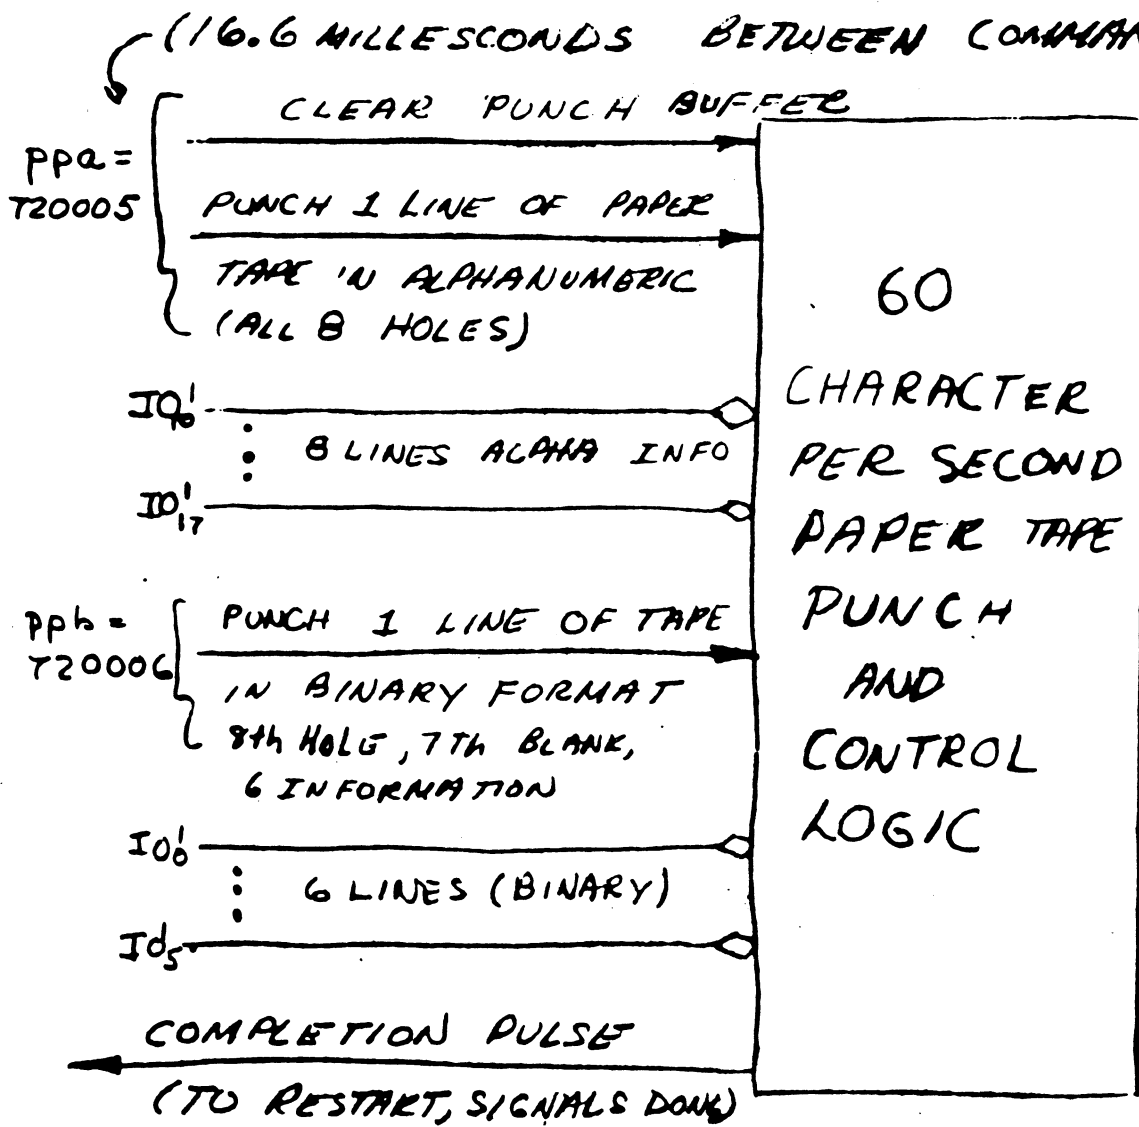 (16.6 MILLESCONDS BETWEEN COMMAN
CLEAR PUNCH BUFFER
ppa =
720005
PUNCH 1 LINE OF PAPER
TAPE IN ALPHANUMERIC
(ALL 8 HOLES)
IO¹₁₀
8 LINES ALPHA INFO
IO¹₁₇
ppb =
720006
PUNCH 1 LINE OF TAPE
IN BINARY FORMAT
8th HOLE, 7Th BLANK,
6 INFORMATION
IO¹₀
6 LINES (BINARY)
IO¹₅
COMPLETION PULSE
(TO RESTART, SIGNALS DONE)
60
CHARACTER
PER SECOND
PAPER TAPE
PUNCH
AND
CONTROL
LOGIC